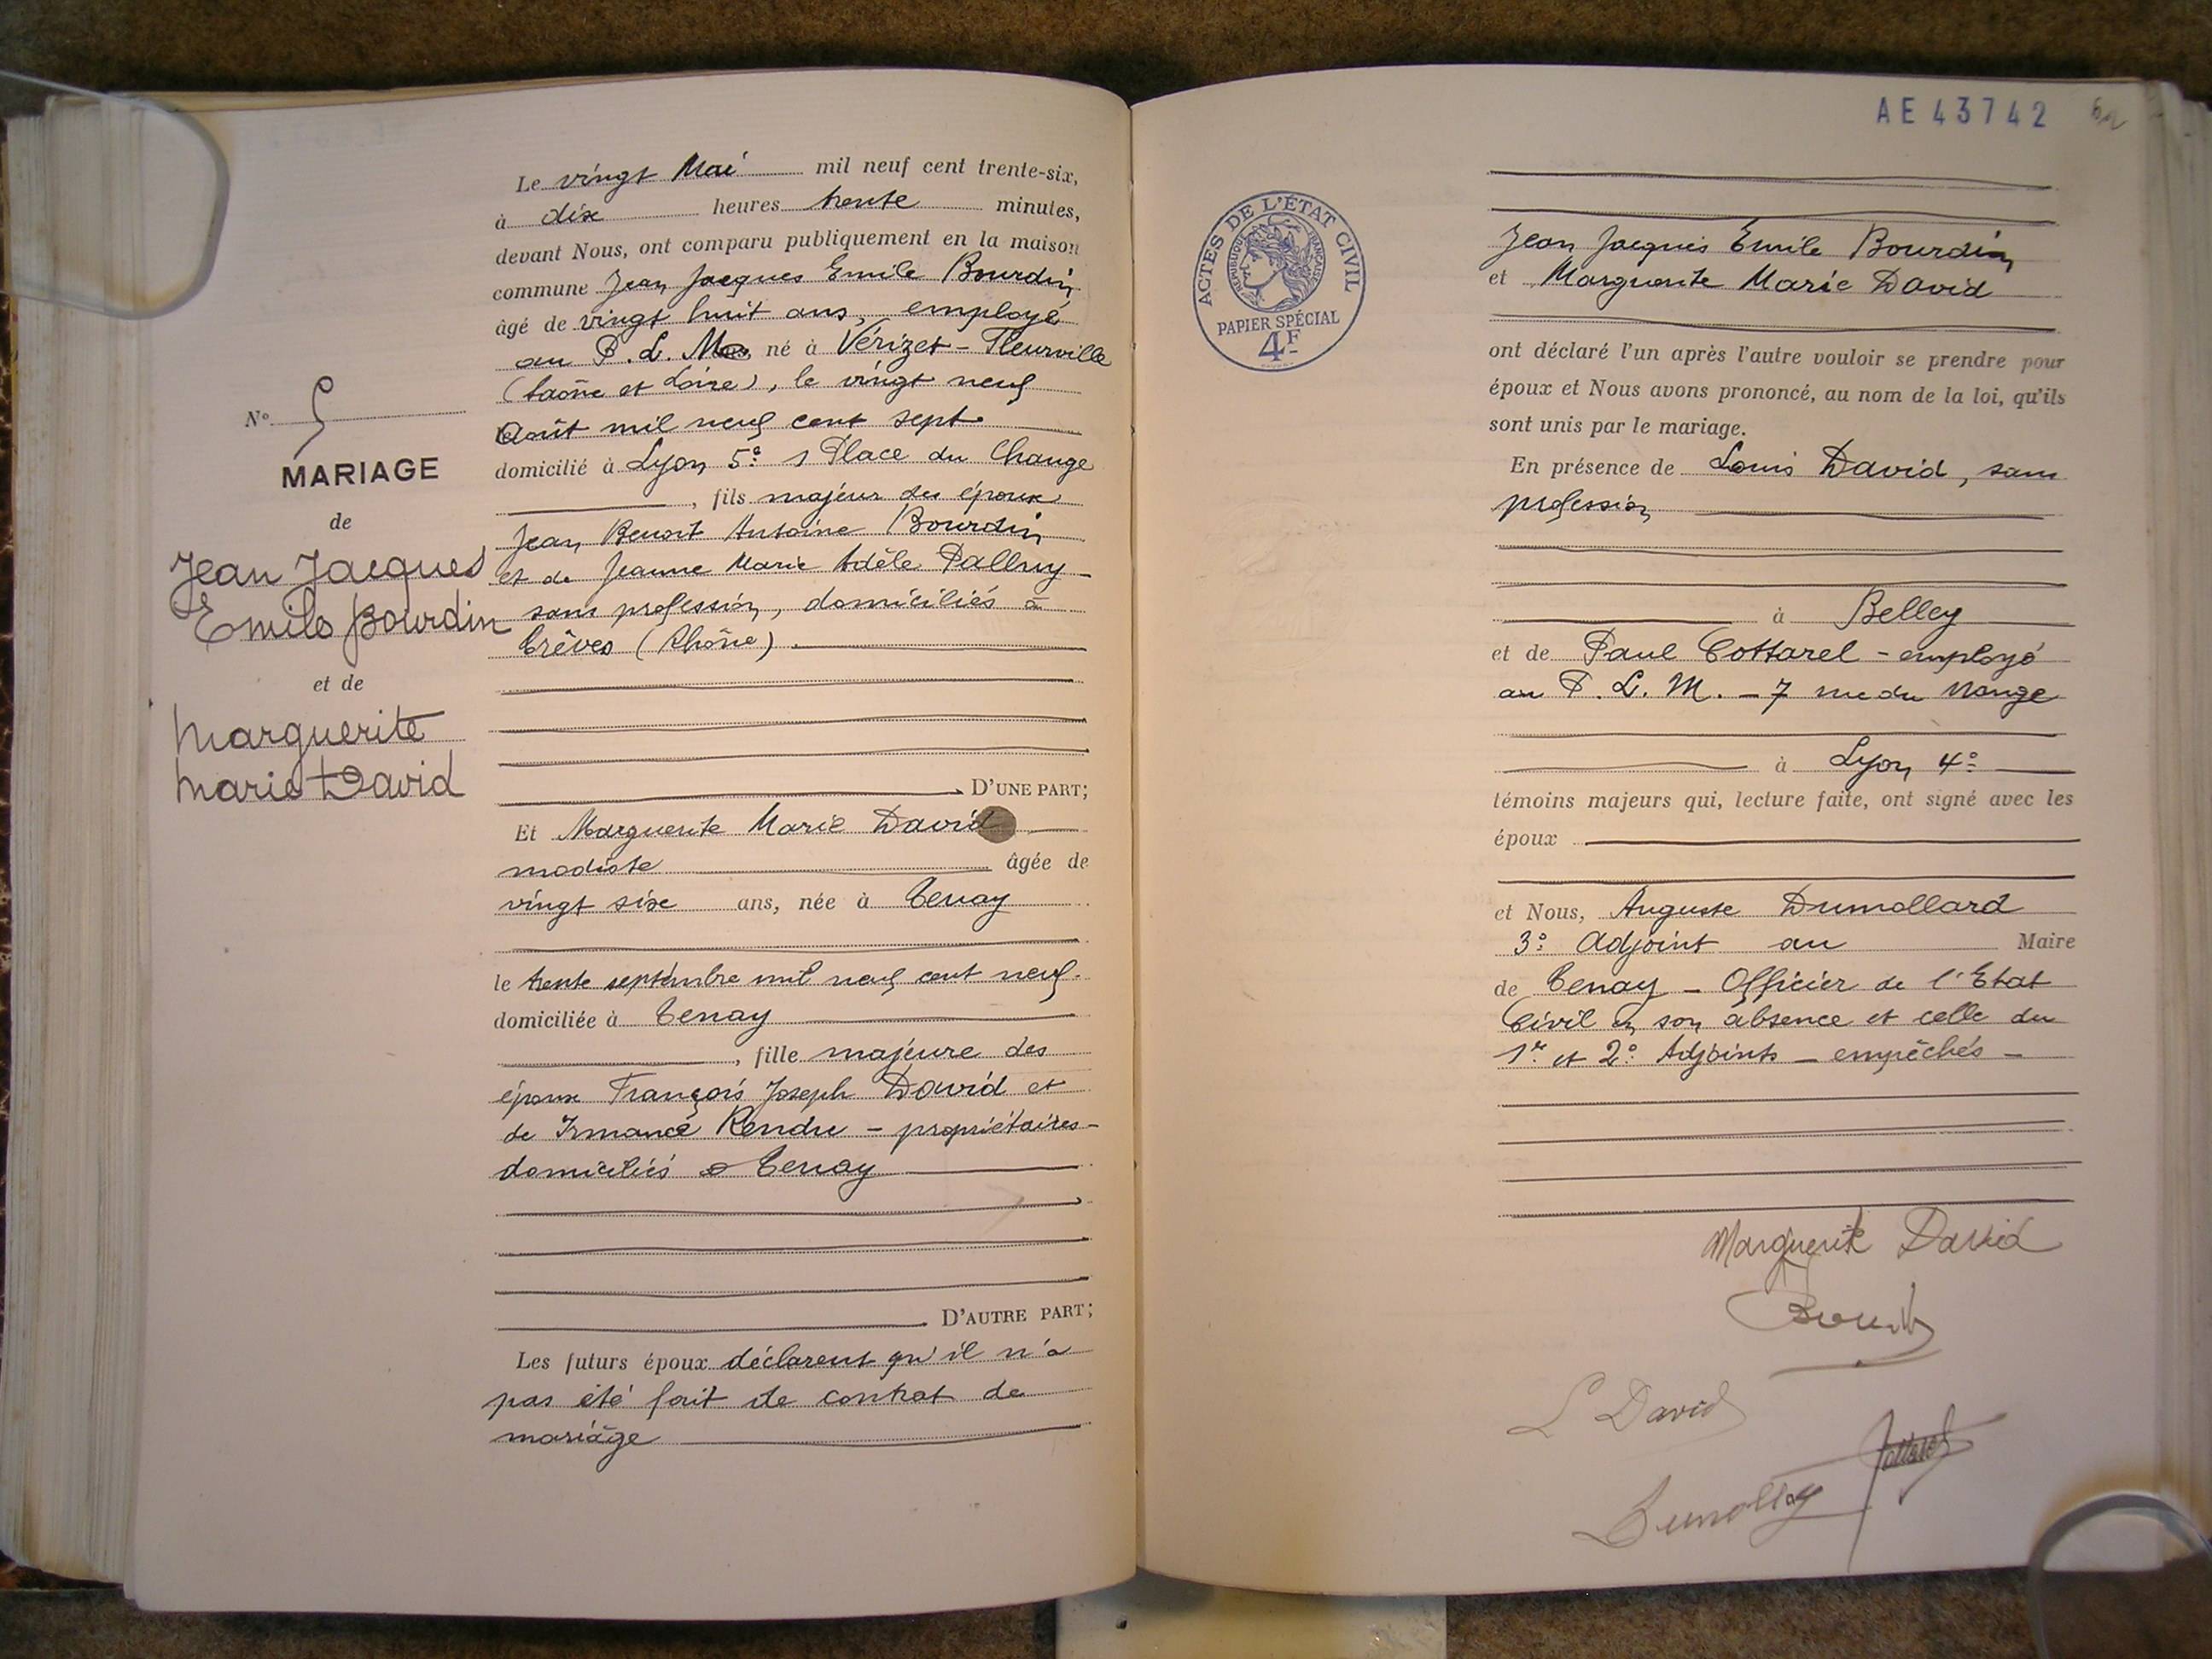 N° 5
MARIAGE
de
Jean Jacques
Emile Bourdin
et de
Marguerite
Marie David
Le vingt Mai mil neuf cent trente-six,
à dix heures trente minutes,
devant Nous, ont comparu publiquement en la maison
commune Jean Jacques Emile Bourdin
âgé de vingt huit ans, employé
au P.L.M. né à Vérizet-Fleurville
(Saône et Loire), le vingt neuf
Août mil neuf cent sept
domicilié à Lyon 5e 1 Place du Change
, fils majeur des époux
Jean Benoit Antoine Bourdin
et de Jeanne Marie Adèle Palluy
sans profession, domiciliés à
Trêves (Rhône)
D'UNE PART;
Et Marguerite Marie David
modiste âgée de
vingt six ans, née à Tenay
le trente septembre mil neuf cent neuf.
domiciliée à Tenay
, fille majeure des
époux François Joseph David et
de Irmance Rendu - propriétaires-
domiciliés à Tenay
D'AUTRE PART;
Les futurs époux déclarent qu'il n'a
pas été fait de contrat de
mariage
AE43742
ACTES DE L'ÉTAT CIVIL
RÉPUBLIQUE FRANÇAISE
PAPIER SPÉCIAL
4F
Jean Jacques Emile Bourdin
et Marguerite Marie David
ont déclaré l'un après l'autre vouloir se prendre pour
époux et Nous avons prononcé, au nom de la loi, qu'ils
sont unis par le mariage.
En présence de Louis David, sans
profession
à Belley
et de Paul Cottarel - employé
au P.L.M. - 7 rue du
à Lyon 4e
témoins majeurs qui, lecture faite, ont signé avec les
époux
et Nous, Auguste Dumollard
3e Adjoint au Maire
de Tenay - Officier de l'Etat
Civil en son absence et celle du
1er et 2e Adjoints - empêchés -
Marguerite David
L David